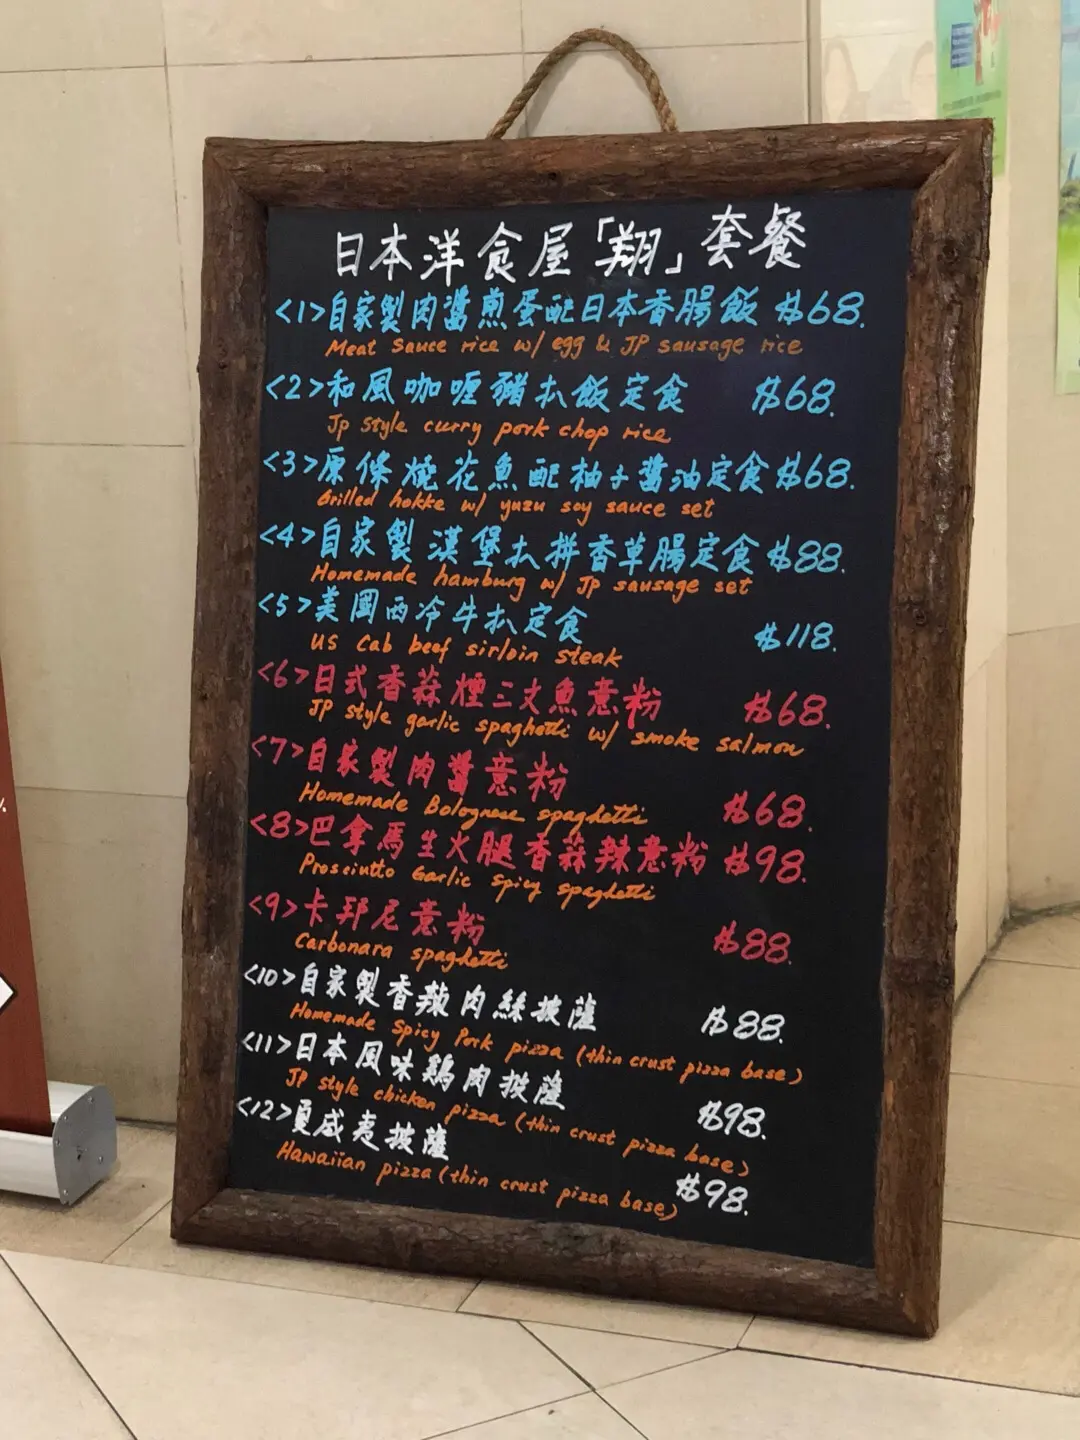 日本洋食屋「翔」套餐
<1>自家製肉醬煎蛋配日本香腸飯 $68.
Meat Sauce rice w/ egg & JP sausage rice
<2>和風咖喱豬扒飯定食 $68.
Jp style curry pork chop rice
<3>原條燒花魚配柚子醬油定食 $68.
Grilled hokke w/ yuzu soy sauce set
<4>自家製漢堡扒拼香草腸定食 $88.
Homemade hamburg w/ JP sausage set
<5>美國西冷牛扒定食 $118.
US Cab beef sirloin steak
<6>日式香蒜煙三文魚意粉 $68.
JP style garlic spaghetti w/ smoke salmon
<7>自家製肉醬意粉 $68.
Homemade Bolognese spaghetti
<8>巴拿馬生火腿香蒜辣意粉 $98.
Prosciutto Garlic Spicy spaghetti
<9>卡邦尼意粉 $88.
Carbonara spaghetti
<10>自家製香辣肉絲披薩 $88.
Homemade Spicy Pork pizza (thin crust pizza base)
<11>日本風味鶏肉披薩 $98.
JP style chicken pizza (thin crust pizza base)
<12>夏威夷披薩 $98.
Hawaiian pizza (thin crust pizza base)